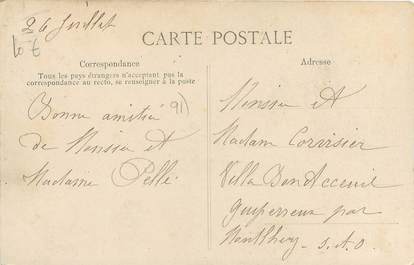 26 Juillet
10 €
CARTE POSTALE
Correspondance
Tous les pays étrangers n'acceptent pas la
correspondance au recto, se renseigner à la poste
Adresse
Bonne amitié
91)
de Monsieu et
Madame Pelle
Monsieu et
Madam Corvisier
Villa Bon Acceuil
Guiperreux par
Montlhery S. et O